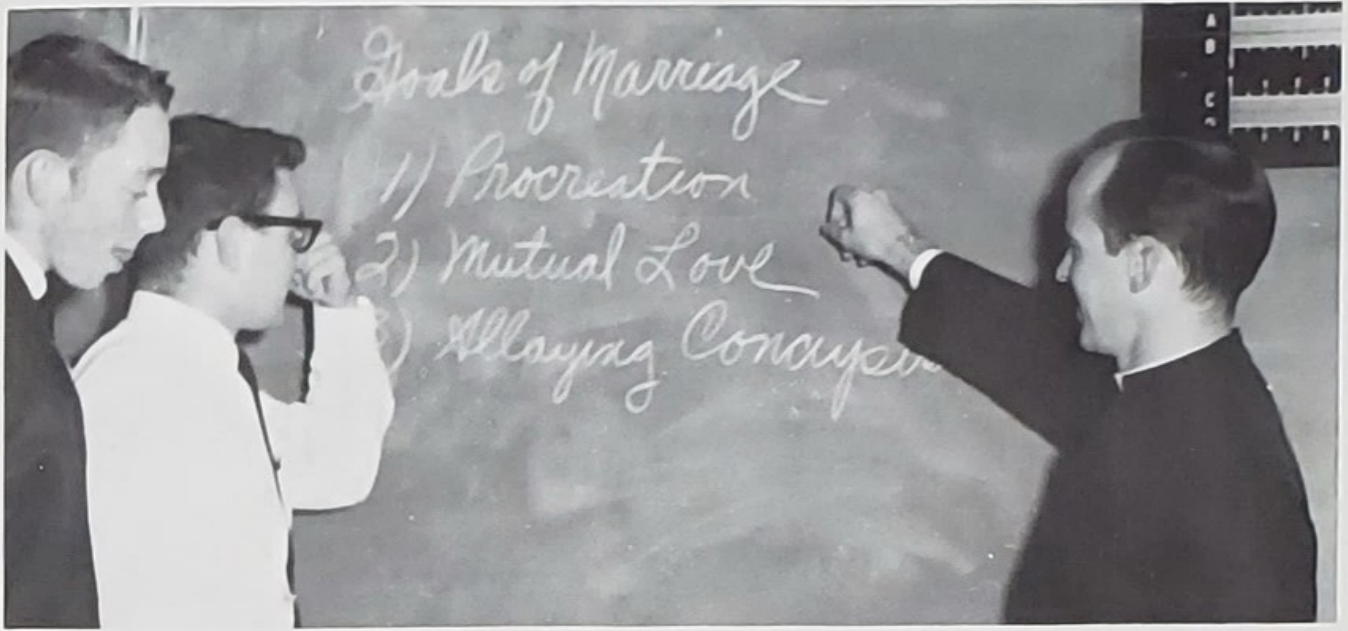 Goals of Marriage
1) Procreation
2) Mutual Love
3) Allaying
A
B
C